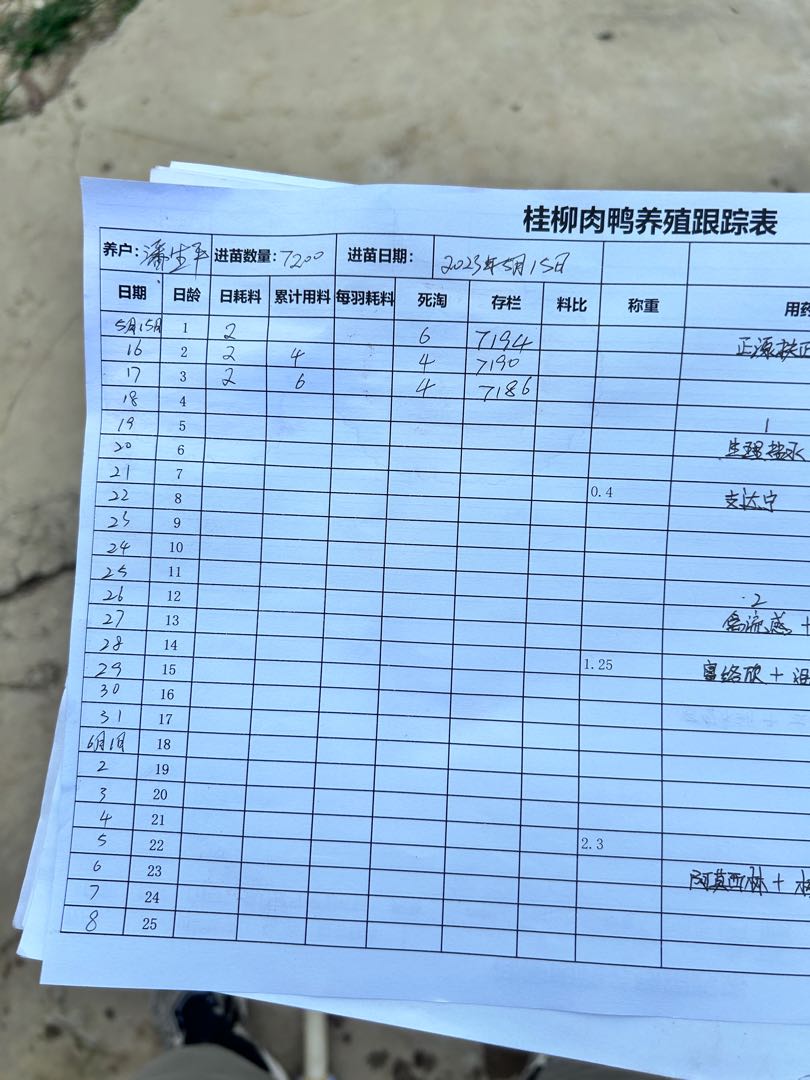 桂柳肉鸭养殖跟踪表
养户: 潘生平 进苗数量: 7200 进苗日期: 2023年5月15日
日期 日龄 日耗料 累计用料 每羽耗料 死淘 存栏 料比 称重 用药
5月15日 1 2 6 7194 正源扶正
16 2 2 4 4 7190
17 3 2 6 4 7186
18 4
19 5 1
20 6 生理盐水
21 7
22 8 0.4 支达宁
23 9
24 10
25 11
26 12 2
27 13 禽流感 +
28 14
29 15 1.25 +
30 16
31 17
6月1日 18
2 19
3 20
4 21
5 22 2.3
6 23 阿莫西林 +
7 24
8 25